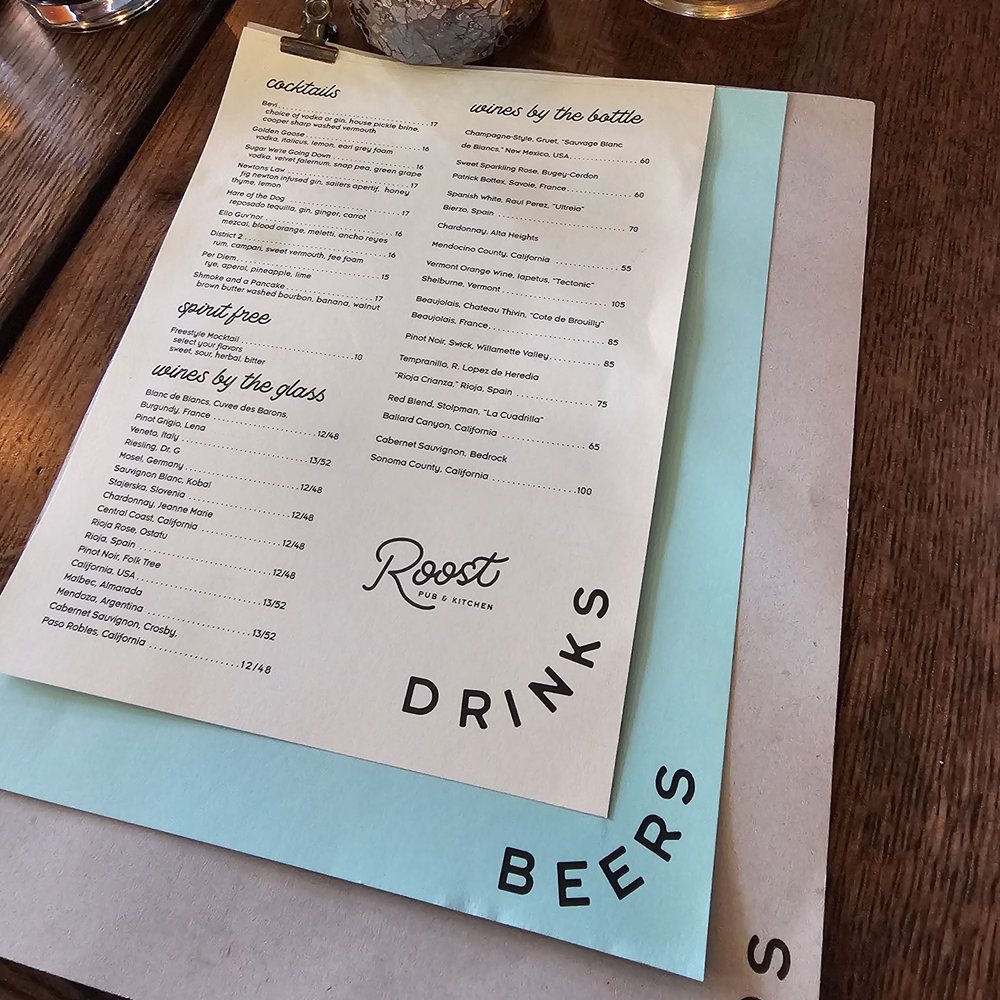 cocktails
Bevi 17
choice of vodka or gin, house pickle brine,
cooper sharp washed vermouth
Golden Goose 16
vodka, italicus, lemon, earl grey foam
Sugar We're Going Down 16
vodka, velvet falernum, snap pea, green grape
Newtons Law 17
fig newton infused gin, sailers apertif, honey
thyme, lemon
Hare of the Dog 17
reposado tequilla, gin, ginger, carrot
Ello Guv'nor 16
mezcal, blood orange, meletti, ancho reyes
District 2 16
rum, campari, sweet vermouth, fee foam
Per Diem 15
rye, aperol, pineapple, lime
Shmoke and a Pancake 17
brown butter washed bourbon, banana, walnut
spirit free
Freestyle Mocktail 10
select your flavors
sweet, sour, herbal, bitter
wines by the glass
Blanc de Blancs, Cuvee des Barons,
Burgundy, France 12/48
Pinot Grigio, Lena
Veneto, Italy 13/52
Riesling, Dr. G
Mosel, Germany 12/48
Sauvignon Blanc, Kobal
Stajerska, Slovenia 12/48
Chardonnay, Jeanne Marie
Central Coast, California 12/48
Rioja Rose, Ostatu
Rioja, Spain 12/48
Pinot Noir, Folk Tree
California, USA 13/52
Malbec, Almarada
Mendoza, Argentina 13/52
Cabernet Sauvignon, Crosby,
Paso Robles, California 12/48
wines by the bottle
Champagne-Style, Gruet, "Sauvage Blanc
de Blancs," New Mexico, USA 60
Sweet Sparkling Rose, Bugey-Cerdon
Patrick Bottex, Savoie, France 60
Spanish White, Raul Perez, "Ultreia"
Bierzo, Spain 70
Chardonnay, Alta Heights
Mendocino County, California 55
Vermont Orange Wine, Iapetus, "Tectonic"
Shelburne, Vermont 105
Beaujolais, Chateau Thivin, "Cote de Brouilly"
Beaujolais, France 85
Pinot Noir, Swick, Willamette Valley 85
Tempranillo, R. Lopez de Heredia
"Rioja Crianza," Rioja, Spain 75
Red Blend, Stolpman, "La Cuadrilla"
Ballard Canyon, California 65
Cabernet Sauvignon, Bedrock
Sonoma County, California 100
Roost
PUB & KITCHEN
DRINKS
BEERS